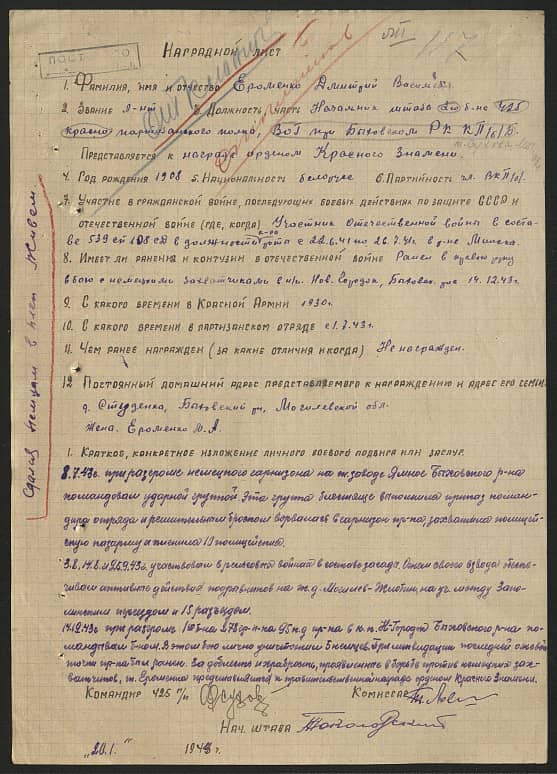 НАГРАДНОЙ ЛИСТ
1. Фамилия, имя и отчество Ероменко Дмитрий
2. Звание л-нт 3. Должность, часть Начальник штаба б-на 425
партизанского полка, ВОГ при Быховском РК КП/б/Б.
Представляется к награде орденом Красного Знамени.
4. Год рождения 1908 5. Национальность белорус 6. Партийность чл. ВКП/б/.
7. Участие в гражданской войне, последующих боевых действиях по защите СССР и
отечественной войне (где, когда) Участник Отечественной войны в соста-
ве 539 сп 108 сд в должности с 22.6.41 по 26.7.41 в р-не Минска.
8. Имеет ли ранения и контузии в отечественной войне Ранен в руку
в бою с немецкими захватчиками в н/п. Нов. Городок, Быхов. 14.12.43 г.
9. С какого времени в Красной Армии 1930 г.
10. С какого времени в партизанском отряде с 1.7.43 г.
11. Чем ранее награжден (за какие отличия и когда) Не награжден.
12 Постоянный домашний адрес представляемого к награждению и адрес его семьи.
д. Студенка, Быховский рн, Могилевской обл.
Жена. Ероменко
1. Краткое, конкретное изложение личного боевого подвига или заслуг.
8.7.43г. при разгроме немецкого гарнизона на заводе Ямное Быховского р-на
командовал ударной группой. Эта группа блестяще выполнила приказ коман-
дира отряда и решительным броском ворвалась в гарнизон пр-ка, захватила полицей-
скую казарму и пленила 19 полицейских.
участвовал в рельсовой войне в составе засады. Огнем своего взвода обеспе-
чивал активные действия подрывников на ж.д. Могилев-Жлобин, на уч. между
переездом и 15 разъездом.
14.12.43г. при разгроме 1 б-на 278 гр. п-ка 95 п.д пр-ка в н.п. Н-Городок Быховского р-на ко-
мандовал В этом бою лично уничтожил 5 немцев. При ликвидации последней огневой
точки пр-ка был ранен. За доблесть и храбрость, проявленные в борьбе против немецких зах-
ватчиков, т. Ероменко представляется к правительственной награде ордену Красного Знамени.
Командир 425 п/п Комиссар
Нач. штаба
"20.1." 194
Сдался немцам в плен живьем